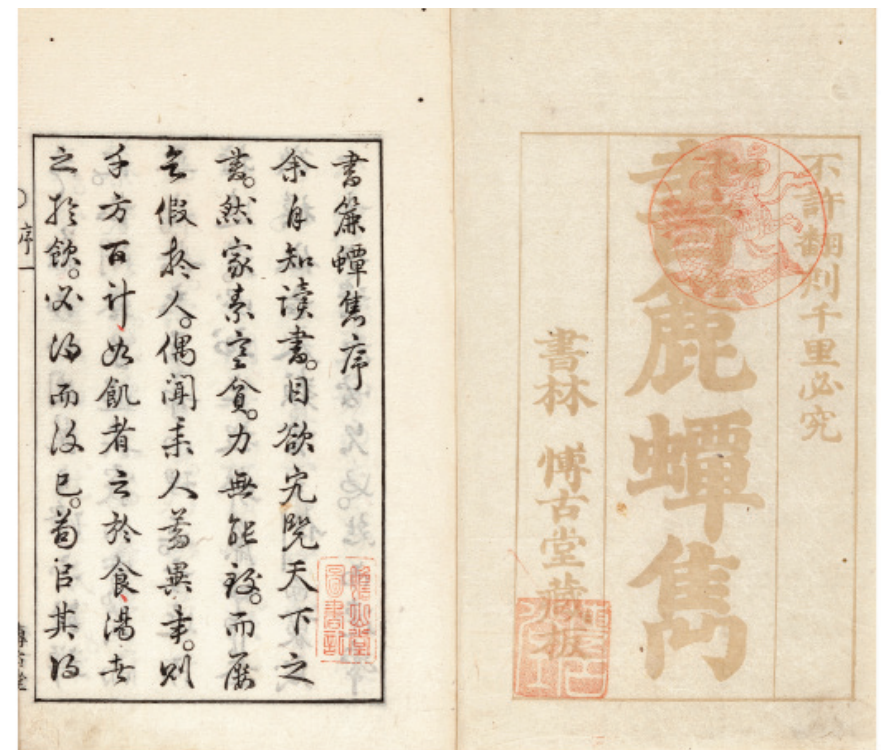 不許翻刻千里必究
書簏蟫雋
書林 愽古堂藏板
書簏蟫雋序
余自知读書。目欲究覧天下之
書。然家素空貧。力無能致。而屡
乞假於人。偶聞某人蓄異書。則
千方百計如飢者之於食渴者
之於飲。必得而後已。苟其得
序一